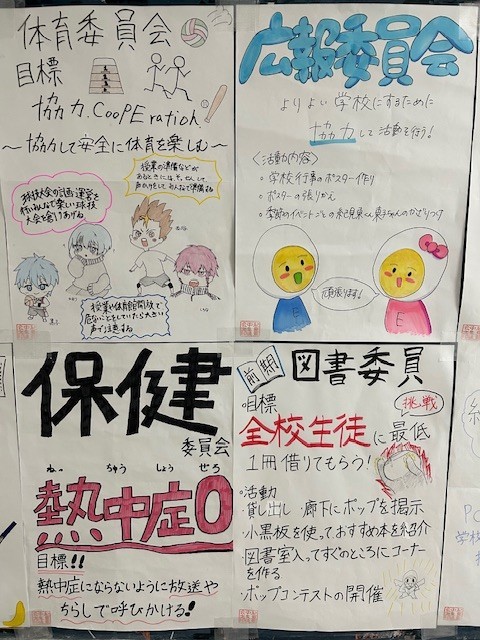 体育委員会
目標
協力.CoopEration
〜協力して安全に体育を楽しむ〜
授業の準備などが
あるときには、
声かけをしてみんなで準備する
球技大会の計画・運営を
行いみんなで楽しい球技
大会を創りあげる
授業や体育館開放で
危ないことをしていたら大きい
声で注意する
広報委員会
よりよい学校にするために
協力して活動を行う!
〈活動内容〉
○学校行事のポスター作り
○ポスターの張りかえ
○季節のイベントごとの
ちゃんのかざりつけ
頑張ります!
E
E
保健
委員会
ねっ ちゅう しょう ぜろ
熱中症0
目標!!
熱中症にならないように放送や
ちらしで呼びかける!
前期 図書委員
目標
挑戦
全校生徒に最低
1冊借りてもらう!
・活動
貸し出し・廊下にポップを掲示
・小黒板を使って、おすすめ本を紹介
・図書室入ってすぐのところにコーナー
を作る
・ポップコンテストの開催
PC
学校